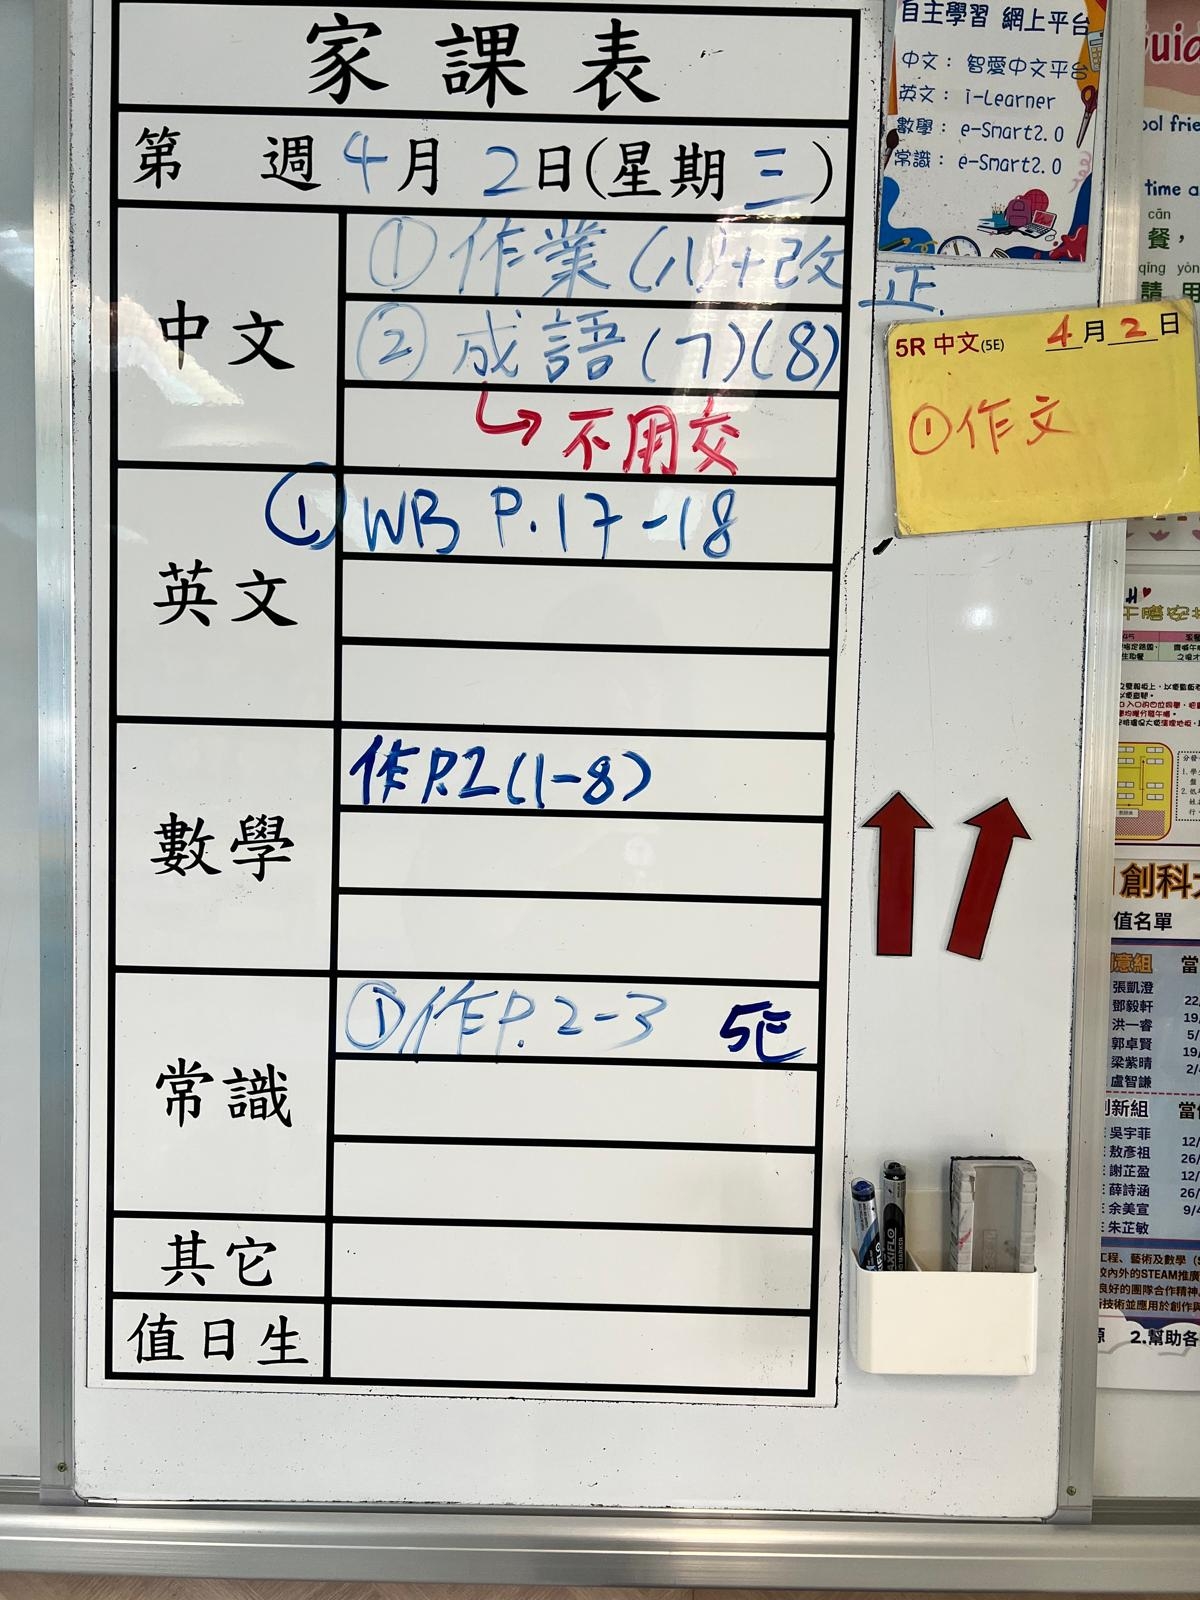 家課表
第 週 4月 2日(星期 三)
中文
①作業(八)+改正.
②成語(7)(8)
↳不用交
英文
① WB P.17-18
數學
作P.2(1-8)
常識
①作P.2-3 5E
其它
值日生
自主學習 網上平台
中文：智愛中文平台
英文：i-Learner
數學：e-Smart2.0
常識：e-Smart2.0
5R 中文(5E) 4月2日
①作文
ool frie
time a
cān
餐，
qǐng yòn
請 用
創科大
值名單
意組 當
張凱澄
鄧毅軒 22/
洪一睿 19/
郭卓賢 5/
梁紫晴 19/
盧智謙 2/4
創新組 當值
吳宇菲
敖彥祖 12/
謝芷盈 26/
薛詩涵 12/
余美宣 26/
朱芷敏 9/4
工程、藝術及數學 (S
校內外的STEAM推廣
良好的團隊合作精神
技術並應用於創作與
2.幫助各
MAXIFLO